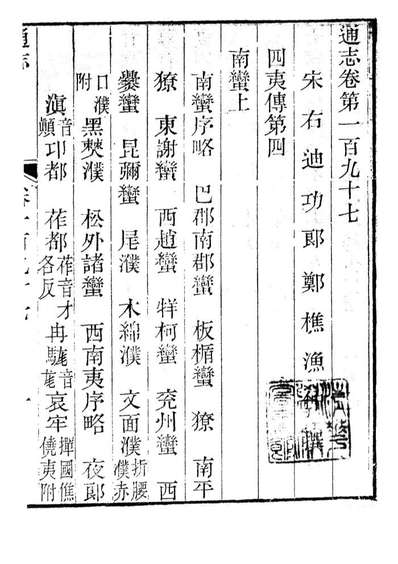 通志卷第一百九十七
宋右迪功郎鄭樵漁撰
四夷傳第四
南蠻上
南蠻序略 巴郡南郡蠻 板楯蠻 獠 南平
獠 東謝蠻 西趙蠻 牂柯蠻 兖州蠻 西
爨蠻 昆彌蠻 尾濮 木綿濮 文面濮 折腰濮赤
口濮附 黑僰濮 松外諸蠻 西南夷序略 夜郎
滇 音顛 卭都 莋都 莋音才各反 冉駹 音 哀牢 撣國僬僥夷附
通志 卷一百九十七 一